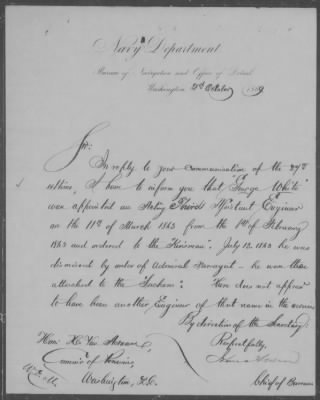 Navy Department
Bureau of Navigation and Office of Detail
Washington 21st October 1869
Sir:
In reply to your communication of the
I have to inform you that "George White"
was appointed an Acting Third Assistant Engineer
on the 11th of March 1863 from the 1st of February
1863 and ordered to the July 12. 1863 he was
dismissed by order of Admiral Farragut — he was then
attached to the There does not appear
to have been another Engineer of that name in the service
By direction of the Secretary
Respectfully,
Hon. H. Van
Commr. of Pensions,
Washington, D.C.
Chief of Bureau